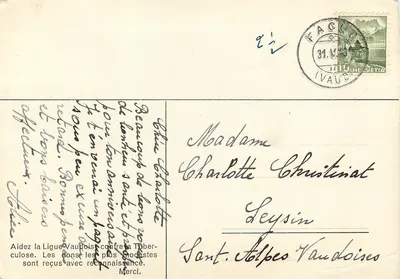 FAOUG
31.V
(VAUD)
2½
Chère Charlotte
Beaucoup de bons vœux
de bonheur santé et
pour ton anniversaire
Je t'en un paquet
sous peu excuse
retard. Bonne pensée
et bons baisers
affectueux. Alice
Aidez la Ligue Vaudoise contre la Tuber-
culose. Les dons les plus modestes
sont reçus avec reconnaissance.
Merci.
Madame
Charlotte Christinat
Leysin
Sant. Alpes Vaudoises